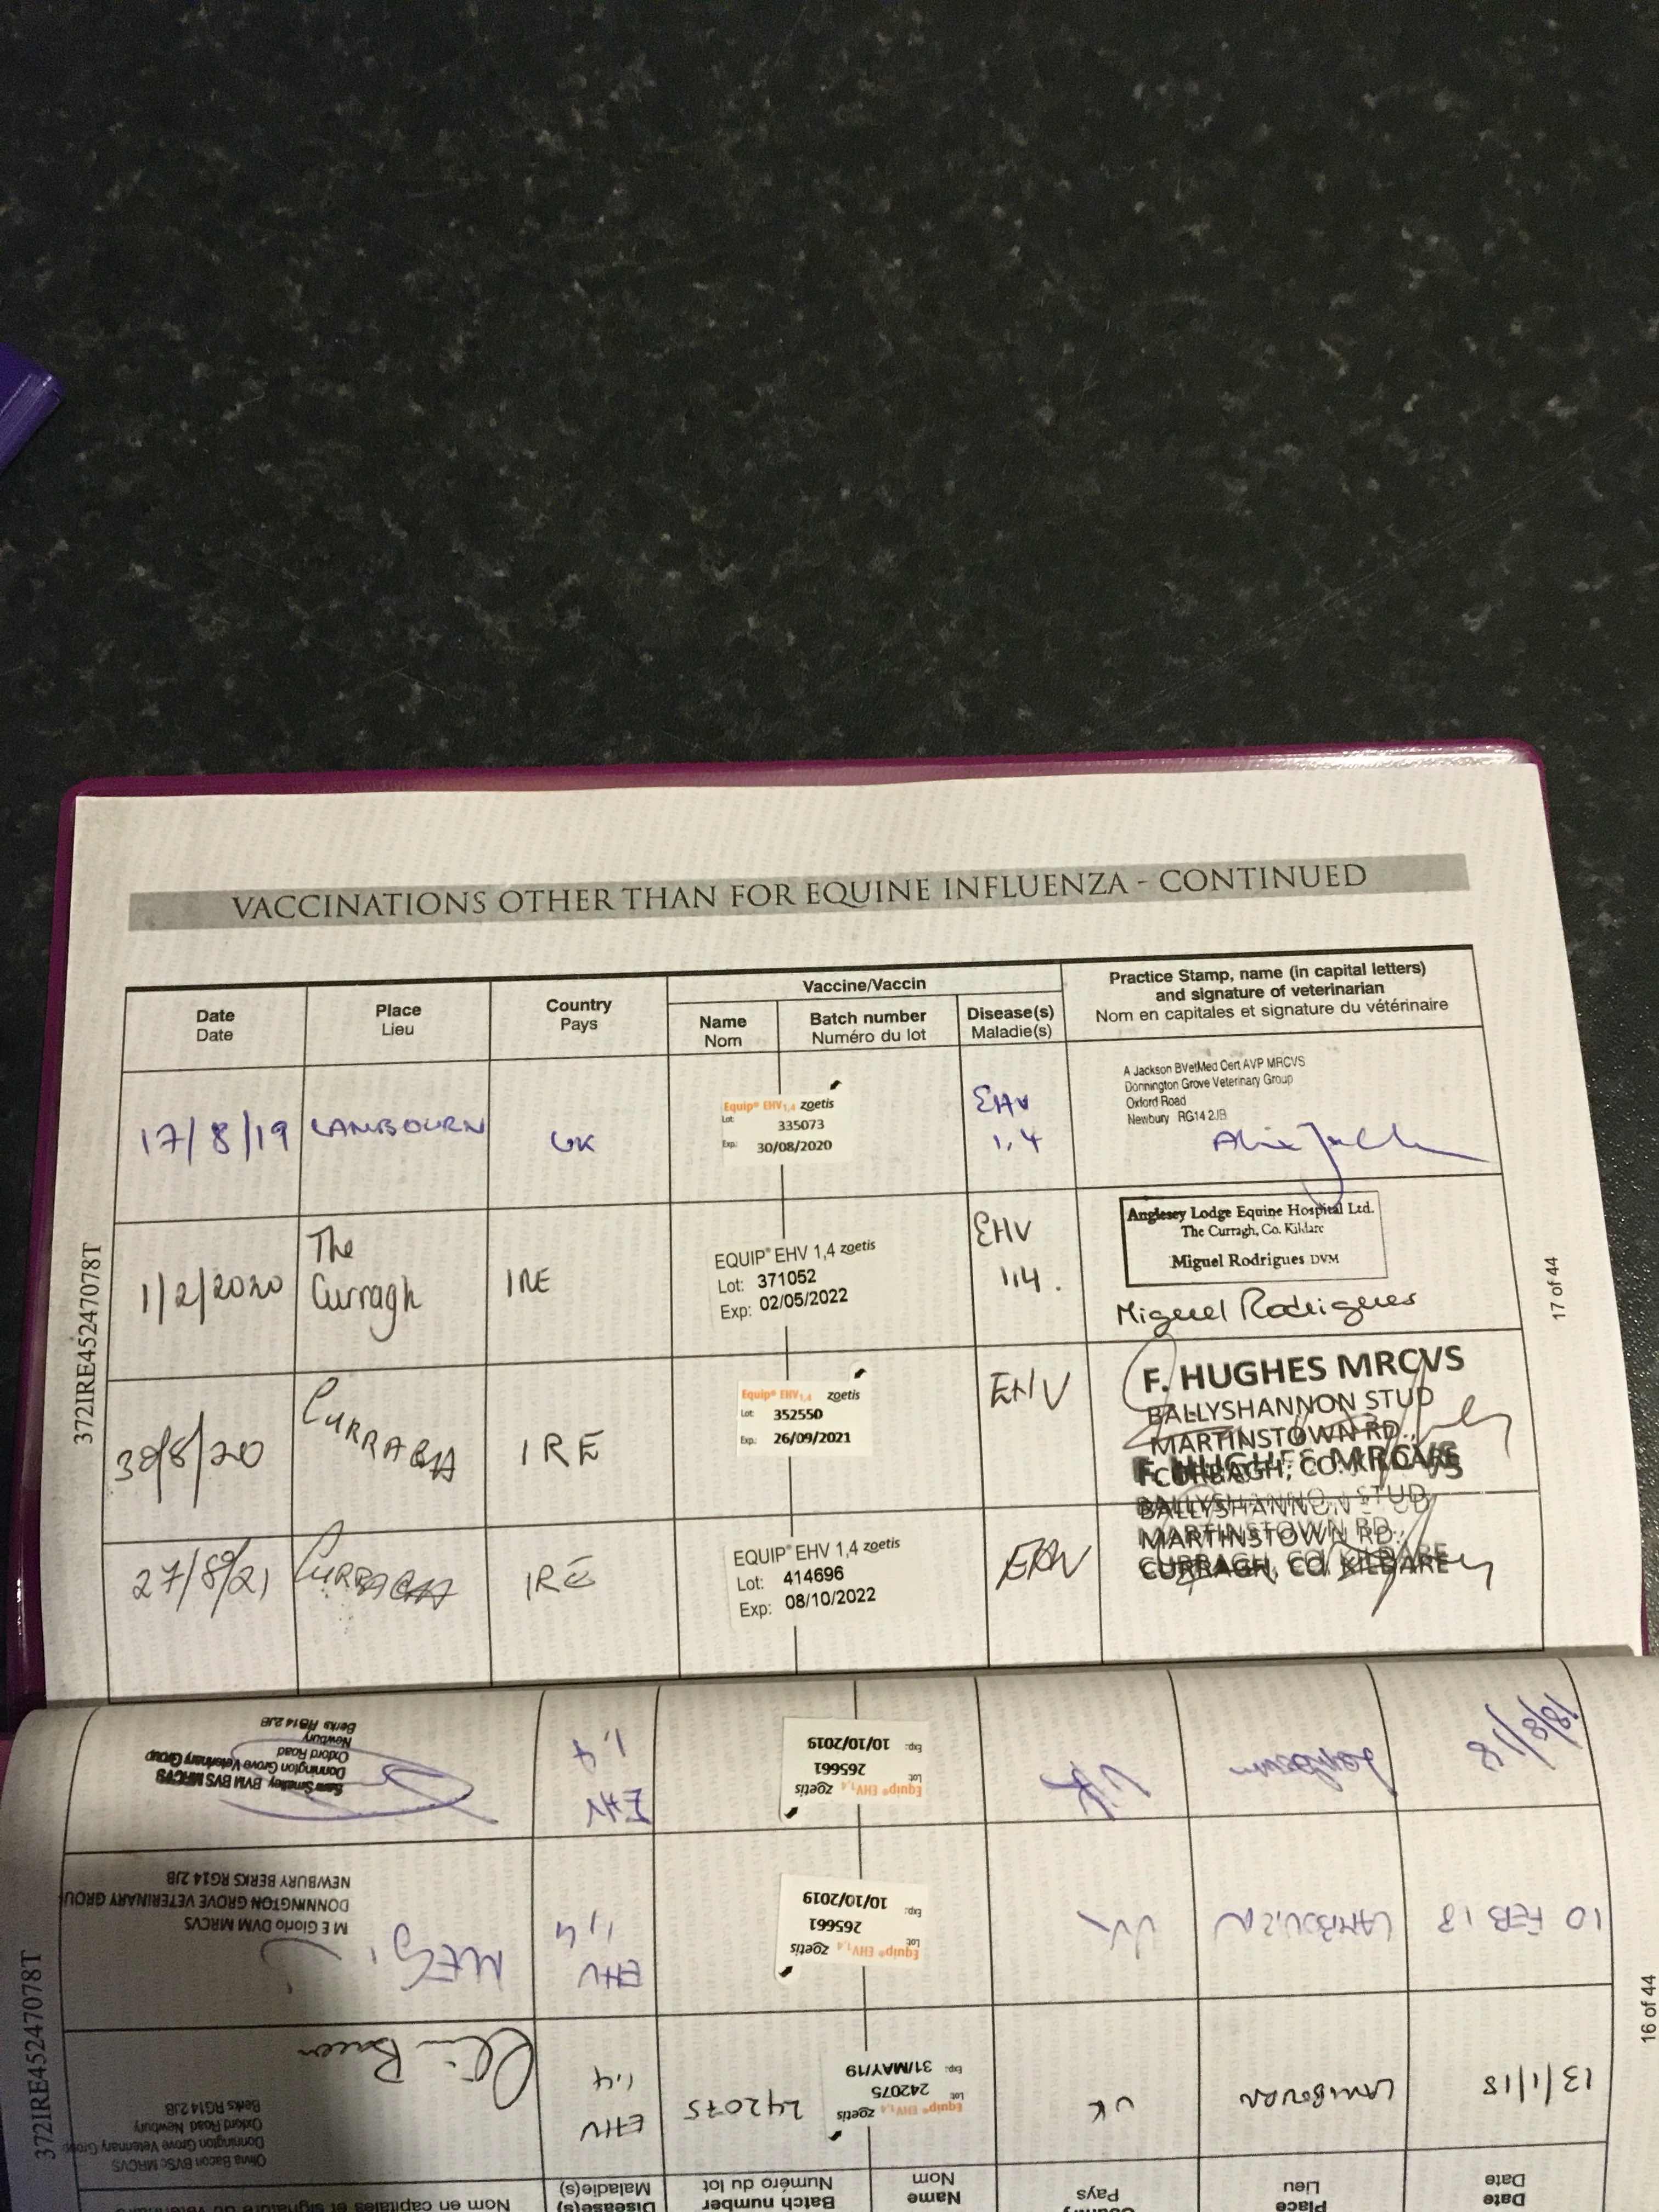 VACCINATIONS OTHER THAN FOR EQUINE INFLUENZA - CONTINUED
Date
Date
Place
Lieu
Country
Pays
Vaccine/Vaccin
Name
Nom
Batch number
Numéro du lot
Disease(s)
Maladie(s)
Practice Stamp, name (in capital letters)
and signature of veterinarian
Nom en capitales et signature du vétérinaire
17/8/19
LAMBOURN
UK
Equip® EHV1,4 zoetis
Lot: 335073
Exp: 30/08/2020
EHV
1,4
A Jackson BVetMed Cert AVP MRCVS
Donnington Grove Veterinary Group
Oxford Road
Newbury RG14 2JB
1/2/2020
The
Curragh
IRE
EQUIP® EHV 1,4 zoetis
Lot: 371052
Exp: 02/05/2022
EHV
1,4.
Anglesey Lodge Equine Hospital Ltd.
The Curragh, Co. Kildare
Miguel Rodrigues DVM
Miguel Rodrigues
/8/20
CURRAGH
IRE
Equip® EHV1,4 zoetis
Lot: 352550
Exp.: 26/09/2021
EHV
F. HUGHES MRCVS
BALLYSHANNON STUD
MARTINSTOWN RD.,
CURRAGH, CO. KILDARE
27/8/21
CURRAGH
IRE
EQUIP® EHV 1,4 zoetis
Lot: 414696
Exp: 08/10/2022
EHV
F. HUGHES MRCVS
BALLYSHANNON STUD
MARTINSTOWN RD.,
CURRAGH, CO. KILDARE
372IRE45247078T
17 of 44
Date
Date
Place
Lieu
Country
Pays
Name
Nom
Batch number
Numéro du lot
Disease(s)
Maladie(s)
Nom en capitales et signature du vétérinaire
13/1/18
LAMBOURN
UK
Equip® EHV1,4 zoetis
Lot: 242075
Exp.: 31/MAY/19
242075
EHV
1,4
Olivia Bacon BVSc MRCVS
Donnington Grove Veterinary Group
Oxford Road Newbury
Berks RG14 2JB
Bacon
10 FEB 18
LAMBOURN
UK
Equip® EHV1,4 zoetis
Lot: 265661
Exp.: 10/10/2019
EHV
1,4
M E Giorio DVM MRCVS
DONNINGTON GROVE VETERINARY GROUP
NEWBURY BERKS RG14 2JB
18/8/18
Lambourn
UK
Equip® EHV1,4 zoetis
Lot: 265661
Exp.: 10/10/2019
EHV
1,4
BVM BVS MRCVS
Donnington Grove Veterinary Group
Oxford Road
Newbury
Berks RG14 2JB
372IRE45247078T
16 of 44